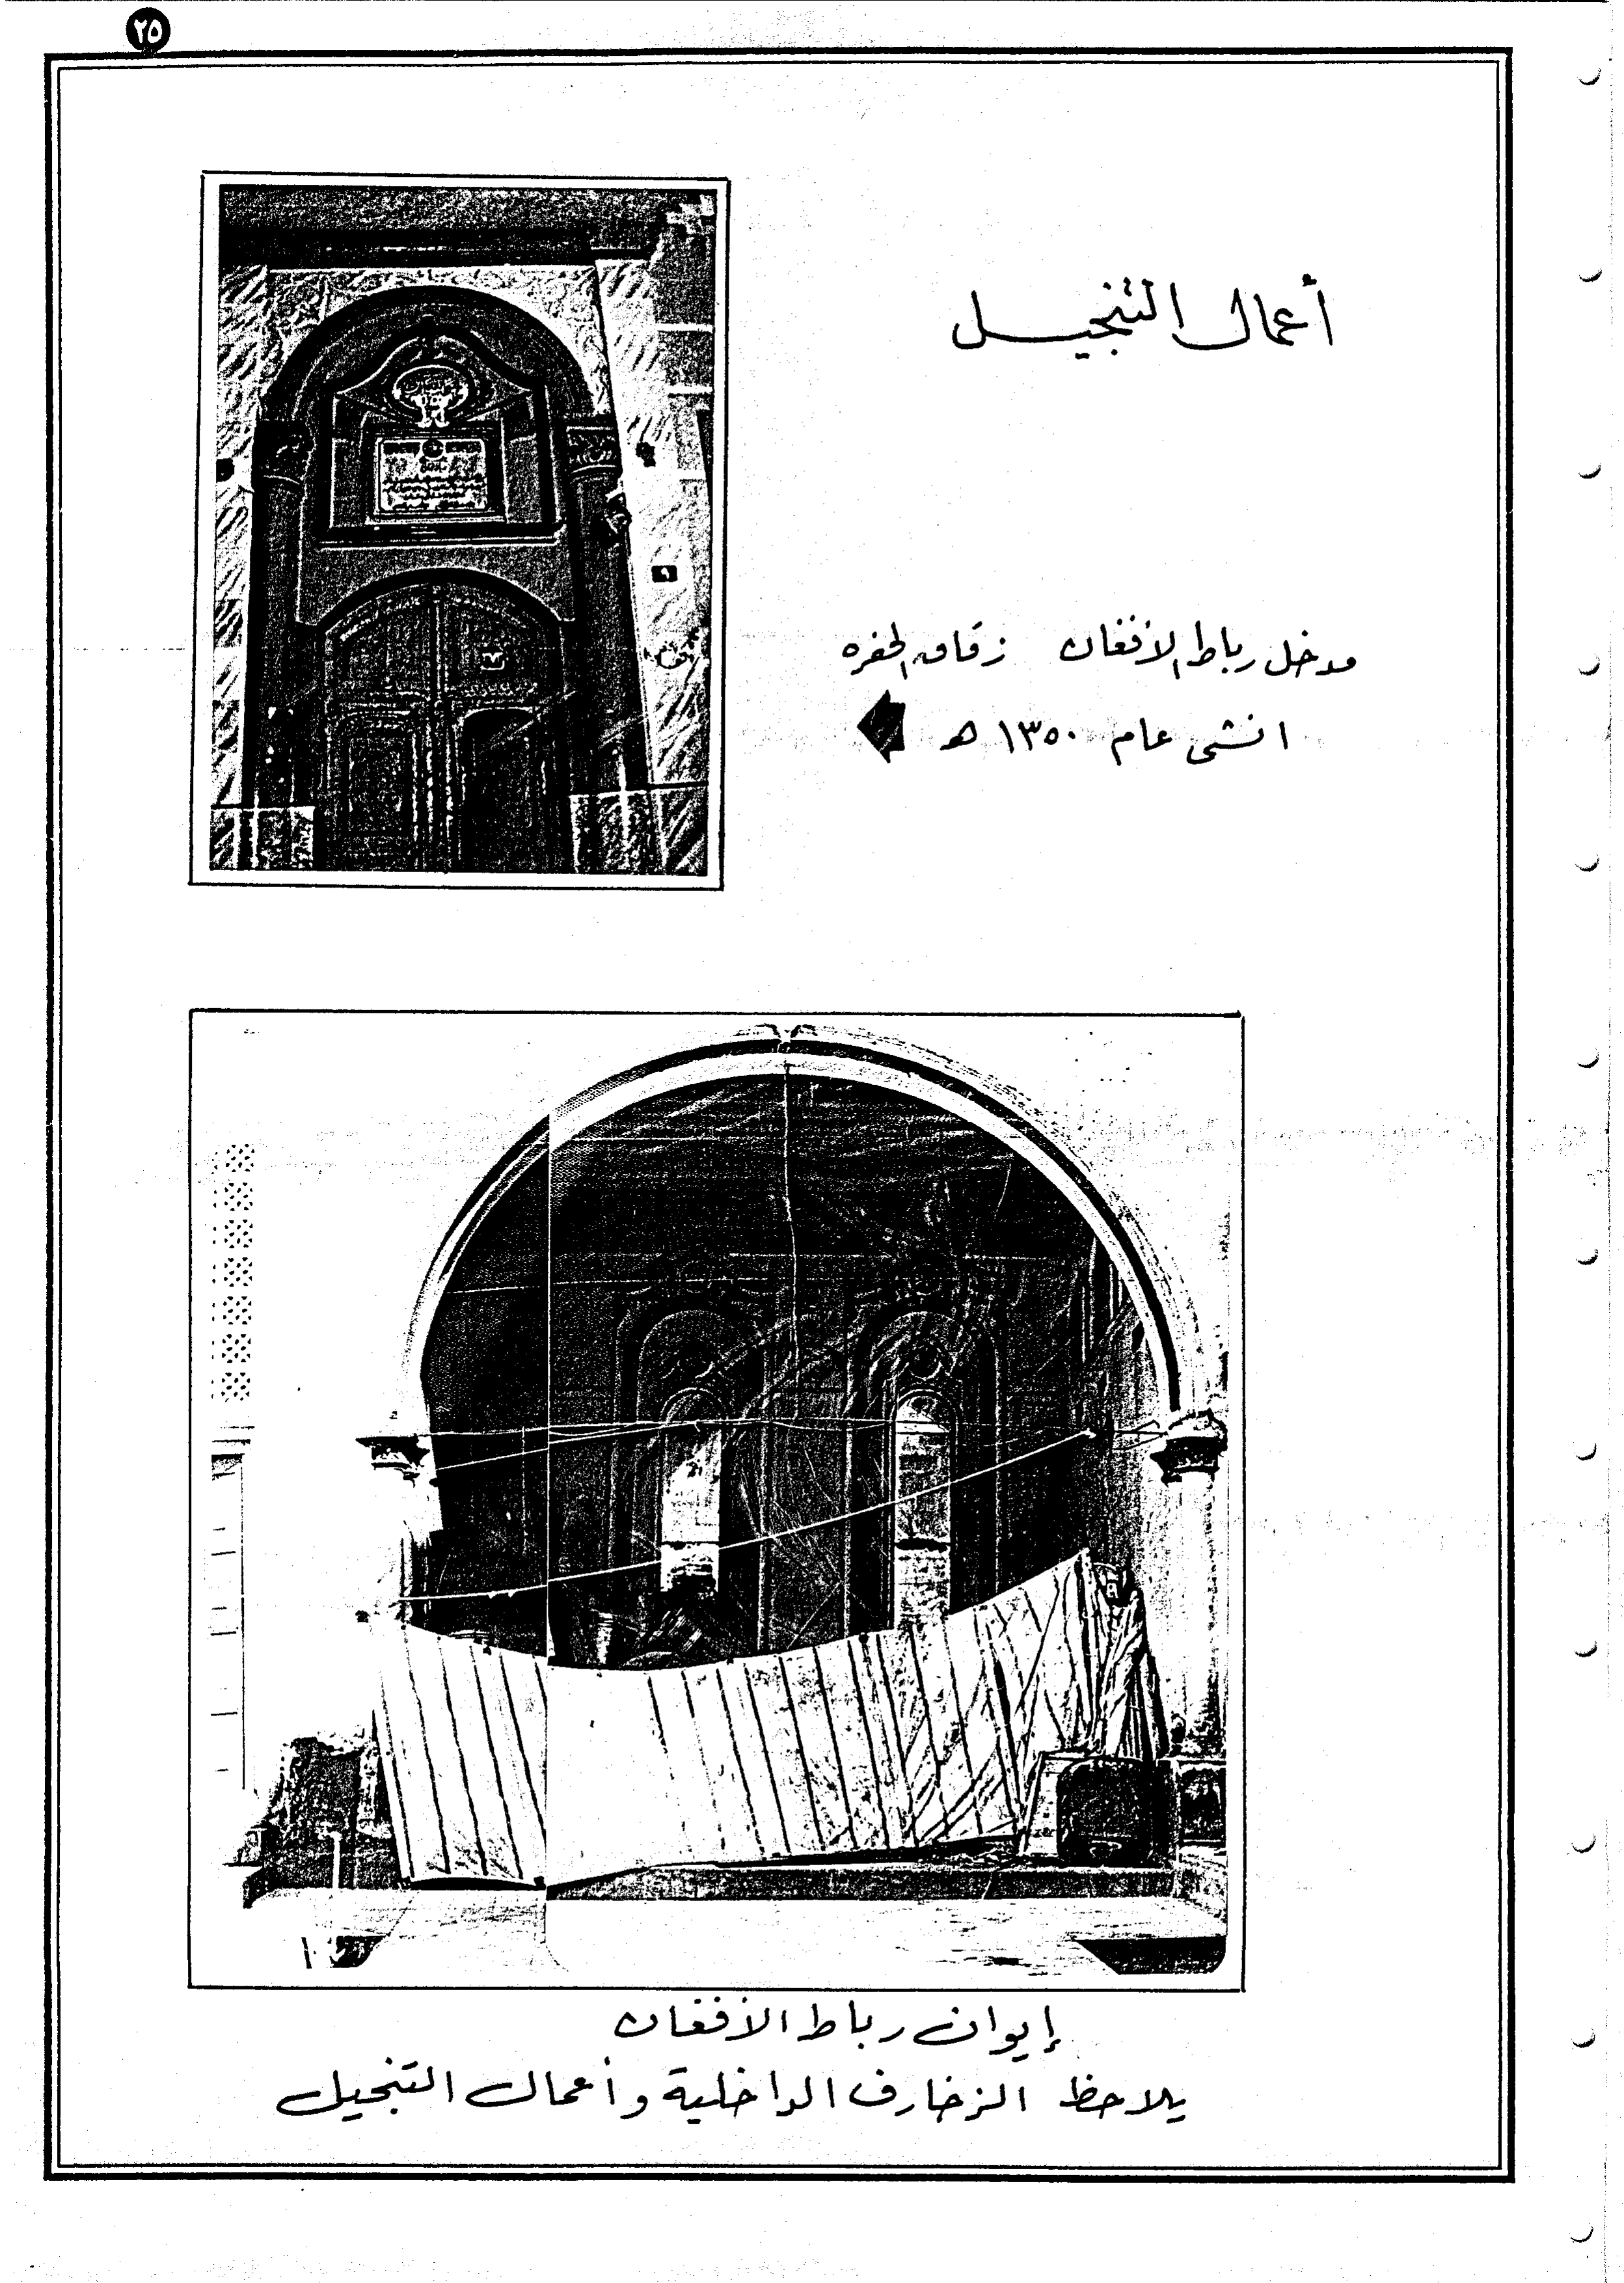 ٢٥
أعمال التنجيل
مدخل رباط الأفغان زقاق الحفره
انشى عام ١٣٥٠ هـ
إيوان رباط الأفغان
يلاحظ الزخارف الداخلية وأعمال التنجيل